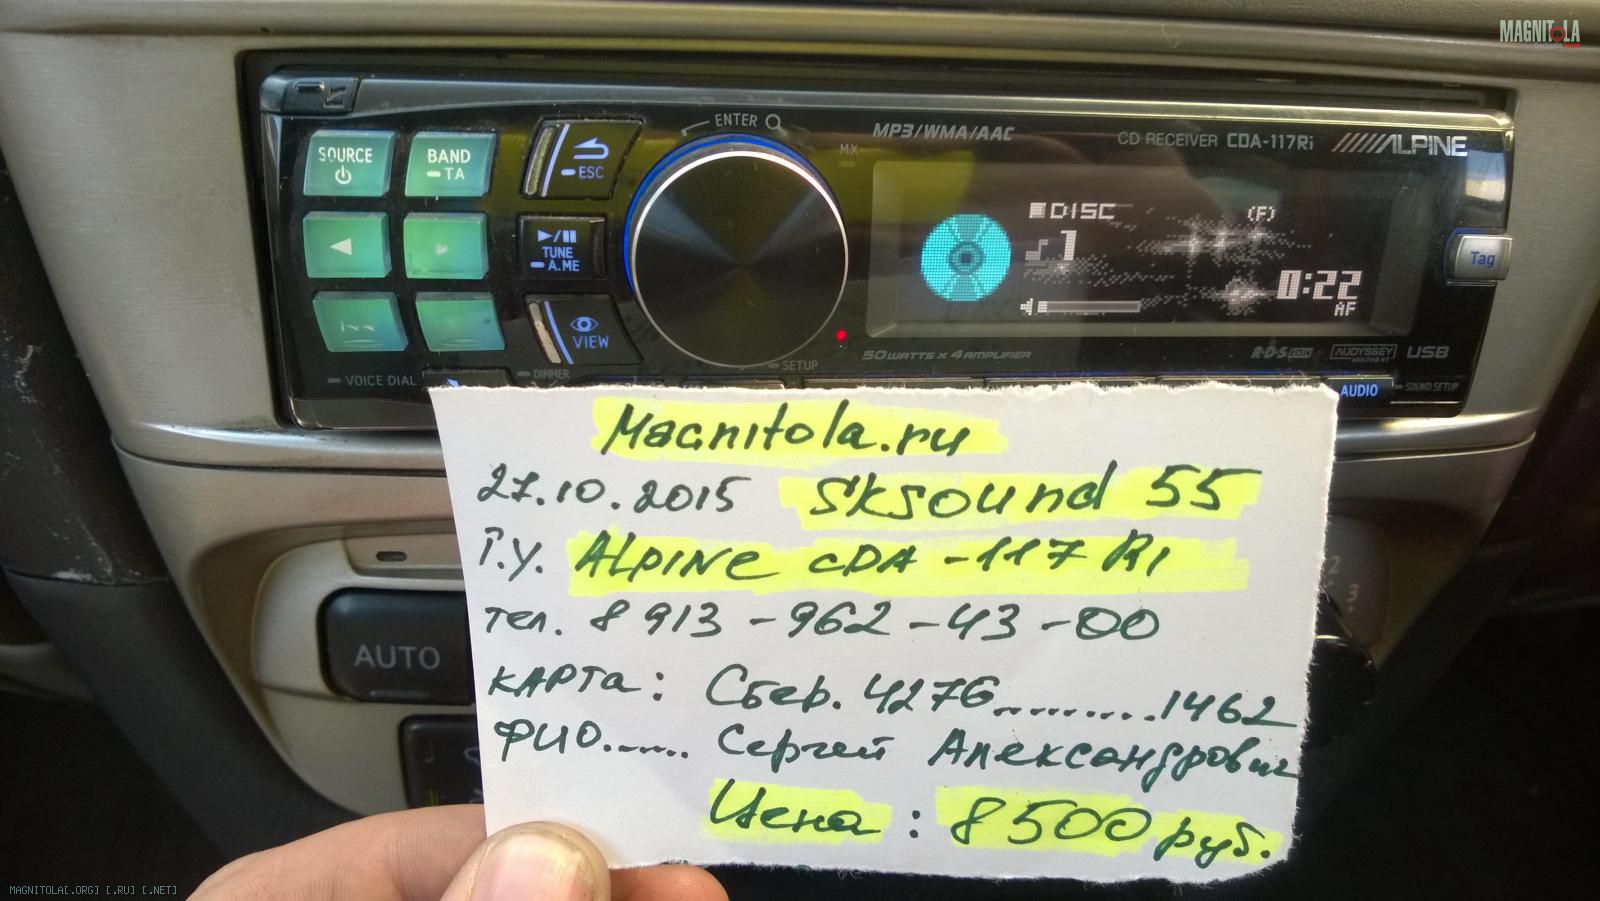 MAGNITOLA
ENTER
MP3/WMA/AAC
CD RECEIVER CDA-117Ri ALPINE
SOURCE
BAND
TA
ESC
MX
DISC
(F)
1
TUNE
A.ME
Tag
0:22
AF
VIEW
50WATTS x 4 AMPLIFIER
R·D·S EON
AUDYSSEY
MULTEQ XT
USB
SETUP
VOICE DIAL
DIMMER
AUDIO
SOUND SETUP
Magnitola.ru
27.10.2015 SkSound 55
Г.У. ALPINE CDA-117 Ri
тел. 8 913-962-43-00
КАРТА: Сбер. 4276..........1462
ФИО...... Сергей Александрович
Цена: 8500 руб.
AUTO
2
3
MAGNITOLA[.ORG] [.RU] [.NET]